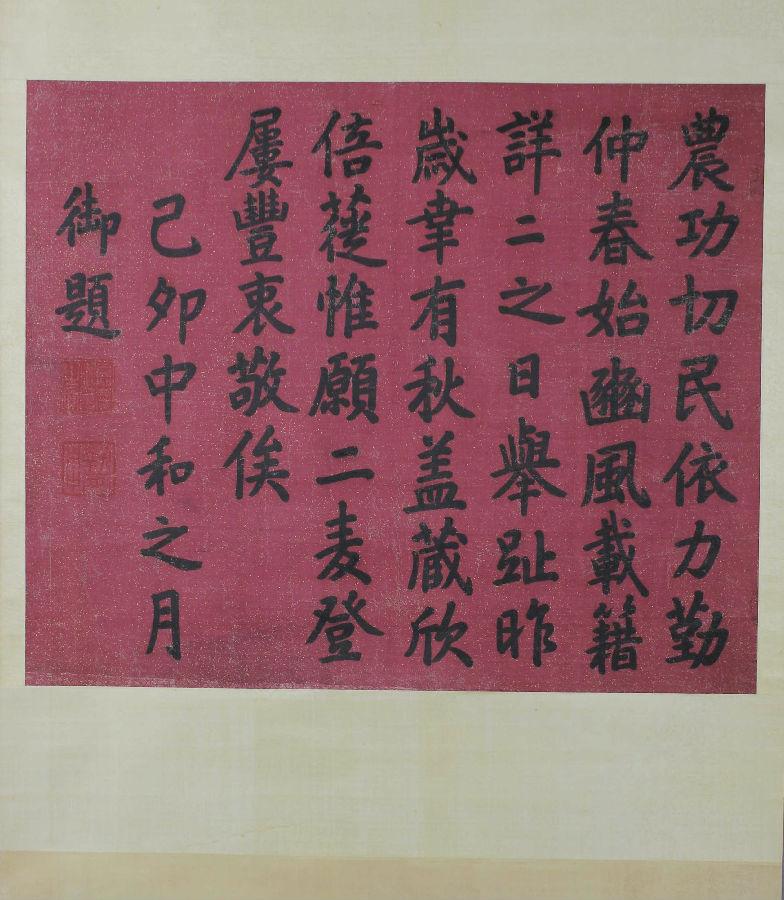 農功切民依力勤
仲春始豳風載籍
詳二之日舉趾昨
歲幸有秋盖蔵欣
倍蓰惟願二麦登
屢豐衷敬俟
己夘中和之月
御題